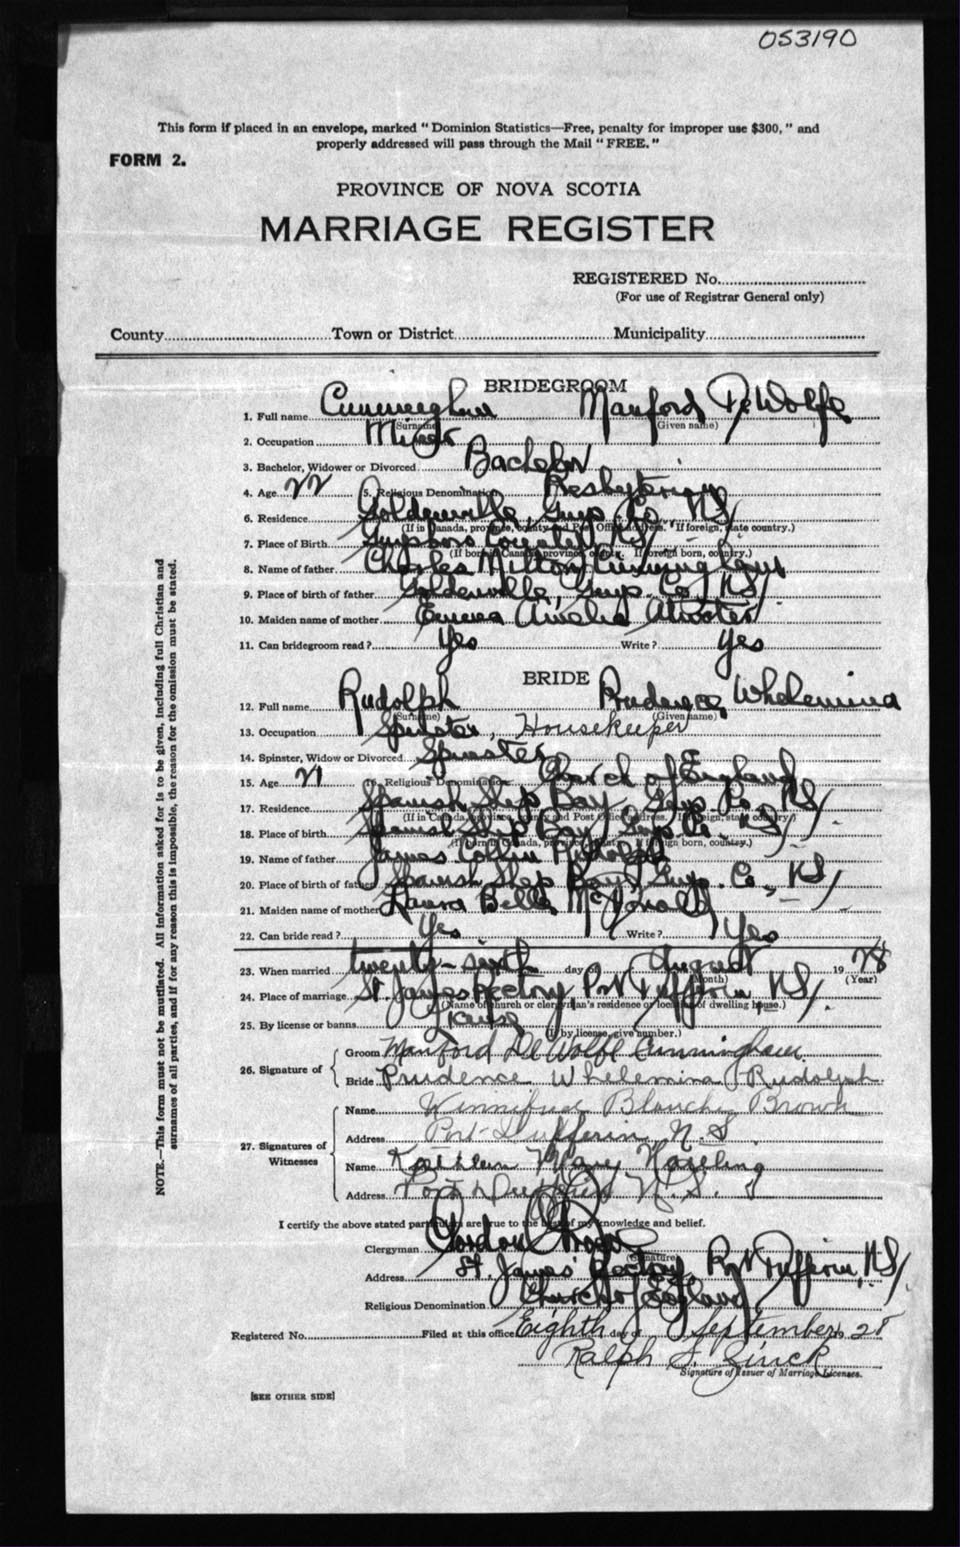 053190
This form if placed in an envelope, marked “Dominion Statistics—Free, penalty for improper use $300,” and
properly addressed will pass through the Mail “FREE.”
FORM 2.
PROVINCE OF NOVA SCOTIA
MARRIAGE REGISTER
REGISTERED No.
(For use of Registrar General only)
County Town or District Municipality
BRIDEGROOM
1. Full name Cunningham Manford DeWolfe
(Surname) (Given name)
2. Occupation Miner
3. Bachelor, Widower or Divorced Bachelor
4. Age 22 5. Religious Denomination Presbyterian
6. Residence Goldenville, Guys. Co. NS/
(If in Canada, province, county and Post Office address. If foreign, state country.)
7. Place of Birth NS/
(If born in Canada, province, county. If foreign born, country.)
8. Name of father Charles Milton Cunningham
9. Place of birth of father Goldenville, Guys. Co. NS/
10. Maiden name of mother Emma Amelia
11. Can bridegroom read? Yes Write? Yes
BRIDE
12. Full name Rudolph Prudence Whelemina
(Surname) (Given name)
13. Occupation Spinster, Housekeeper
14. Spinster, Widow or Divorced Spinster
15. Age 21 16. Religious Denomination Church of England
17. Residence Spanish Ship Bay, Guys. Co., NS/
(If in Canada, province, county and Post Office address. If foreign, state country.)
18. Place of birth Spanish Ship Bay, Guys. Co. NS/
(If born in Canada, province, county. If foreign born, country.)
19. Name of father James Collin Rudolph
20. Place of birth of father Spanish Ship Bay, Guys. Co., NS/
21. Maiden name of mother Laura Bella McDonald
22. Can bride read? Yes Write? Yes
23. When married twenty-sixth day of August 19 28
(Month) (Year)
24. Place of marriage St. James Rectory Port Dufferin NS/.
(Name of church or clergyman's residence or location of dwelling house.)
25. By license or banns
(If by license, give number.)
26. Signature of
Groom Manford DeWolfe Cunningham
Bride Prudence Whelemina Rudolph
27. Signatures of Witnesses
Name Winnifred Blanche Brown
Address Port Dufferin N.S.
Name Kathleen Mary
Address Port Dufferin N.S.
I certify the above stated particulars are true to the best of my knowledge and belief.
Clergyman Gordon
(Signature)
Address St. James' Rectory, Port Dufferin, NS/.
Religious Denomination Church of England
Registered No. Filed at this office Eighth day of September 19 28
Ralph
Signature of Issuer of Marriage Licenses.
[SEE OTHER SIDE]
NOTE.—This form must not be mutilated. All information asked for is to be given, including full Christian and
surnames of all parties, and if for any reason this is impossible, the reason for the omission must be stated.